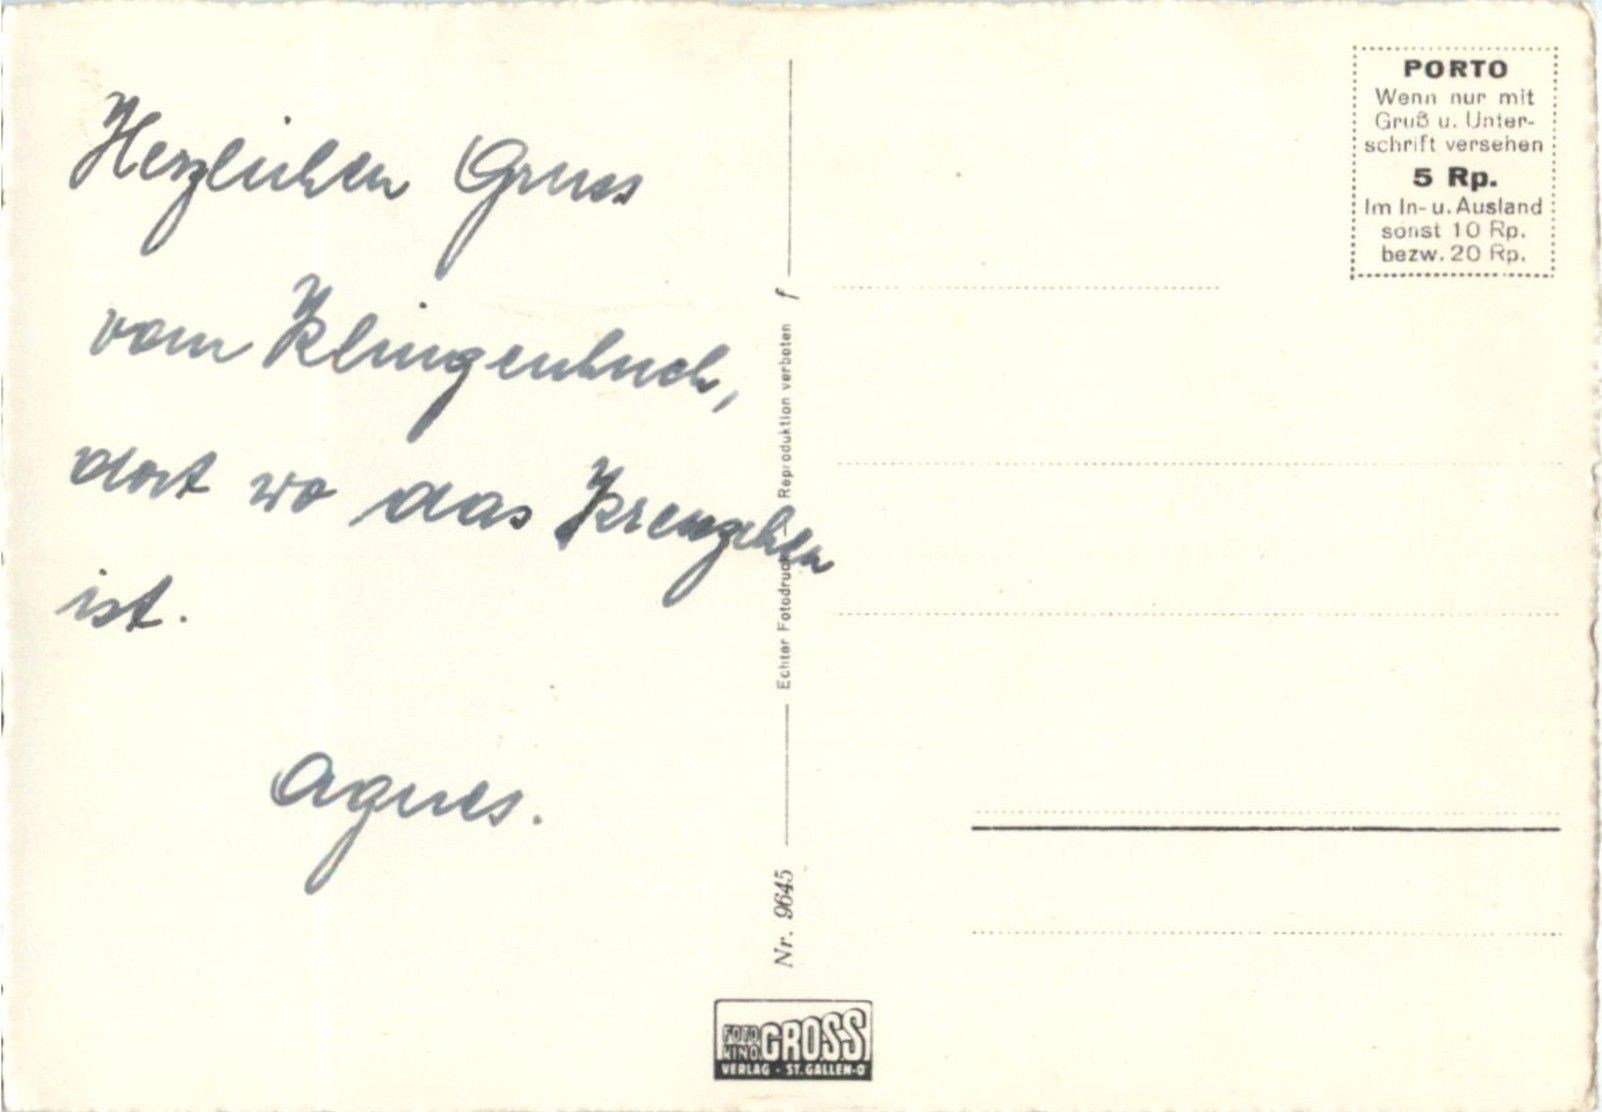 Herzlichen Gruss
vom Klingenbuch,
dort wo das Kreuzchen
ist.
Agnes.
Echter Fotodruck Reproduktion verboten f
Nr. 9645
PORTO
Wenn nur mit
Gruß u. Unter-
schrift versehen
5 Rp.
Im In- u. Ausland
sonst 10 Rp.
bezw. 20 Rp.
FOTO
KINO
GROSS
VERLAG · ST. GALLEN-O